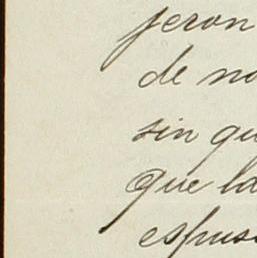 jeron
de no
sin qu
que la
espus